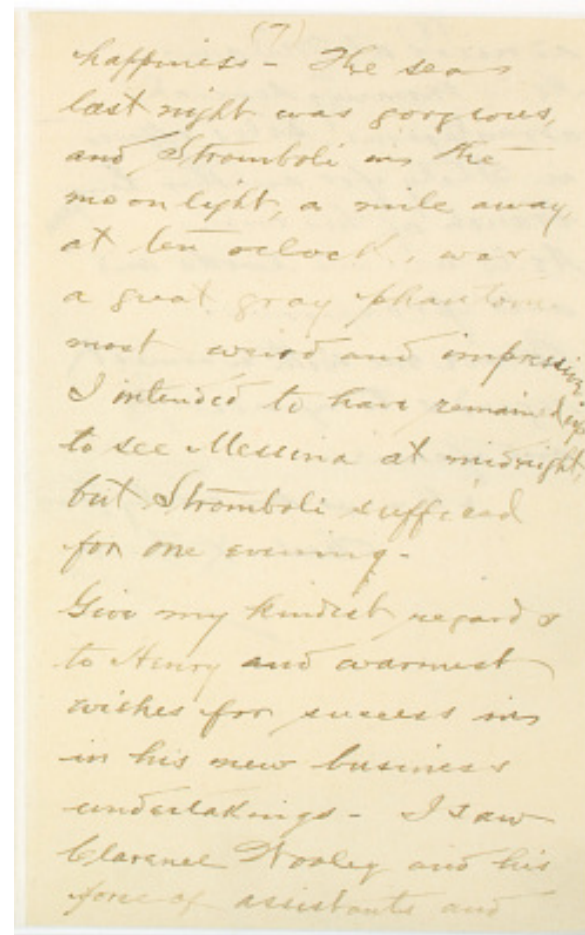 (7)
happiness - The sea
last night was gorgeous,
and Stromboli in the
moonlight, a mile away,
at ten oclock, was
a great gray phantom
most weird and impressive
I intended to have remained up
to see Messina at midnight,
but Stromboli sufficed
for one evening -
Give my kindest regards
to Henry and warmest
wishes for success in
in his new business
undertakings - I saw
Clarence and his
force of assistants and